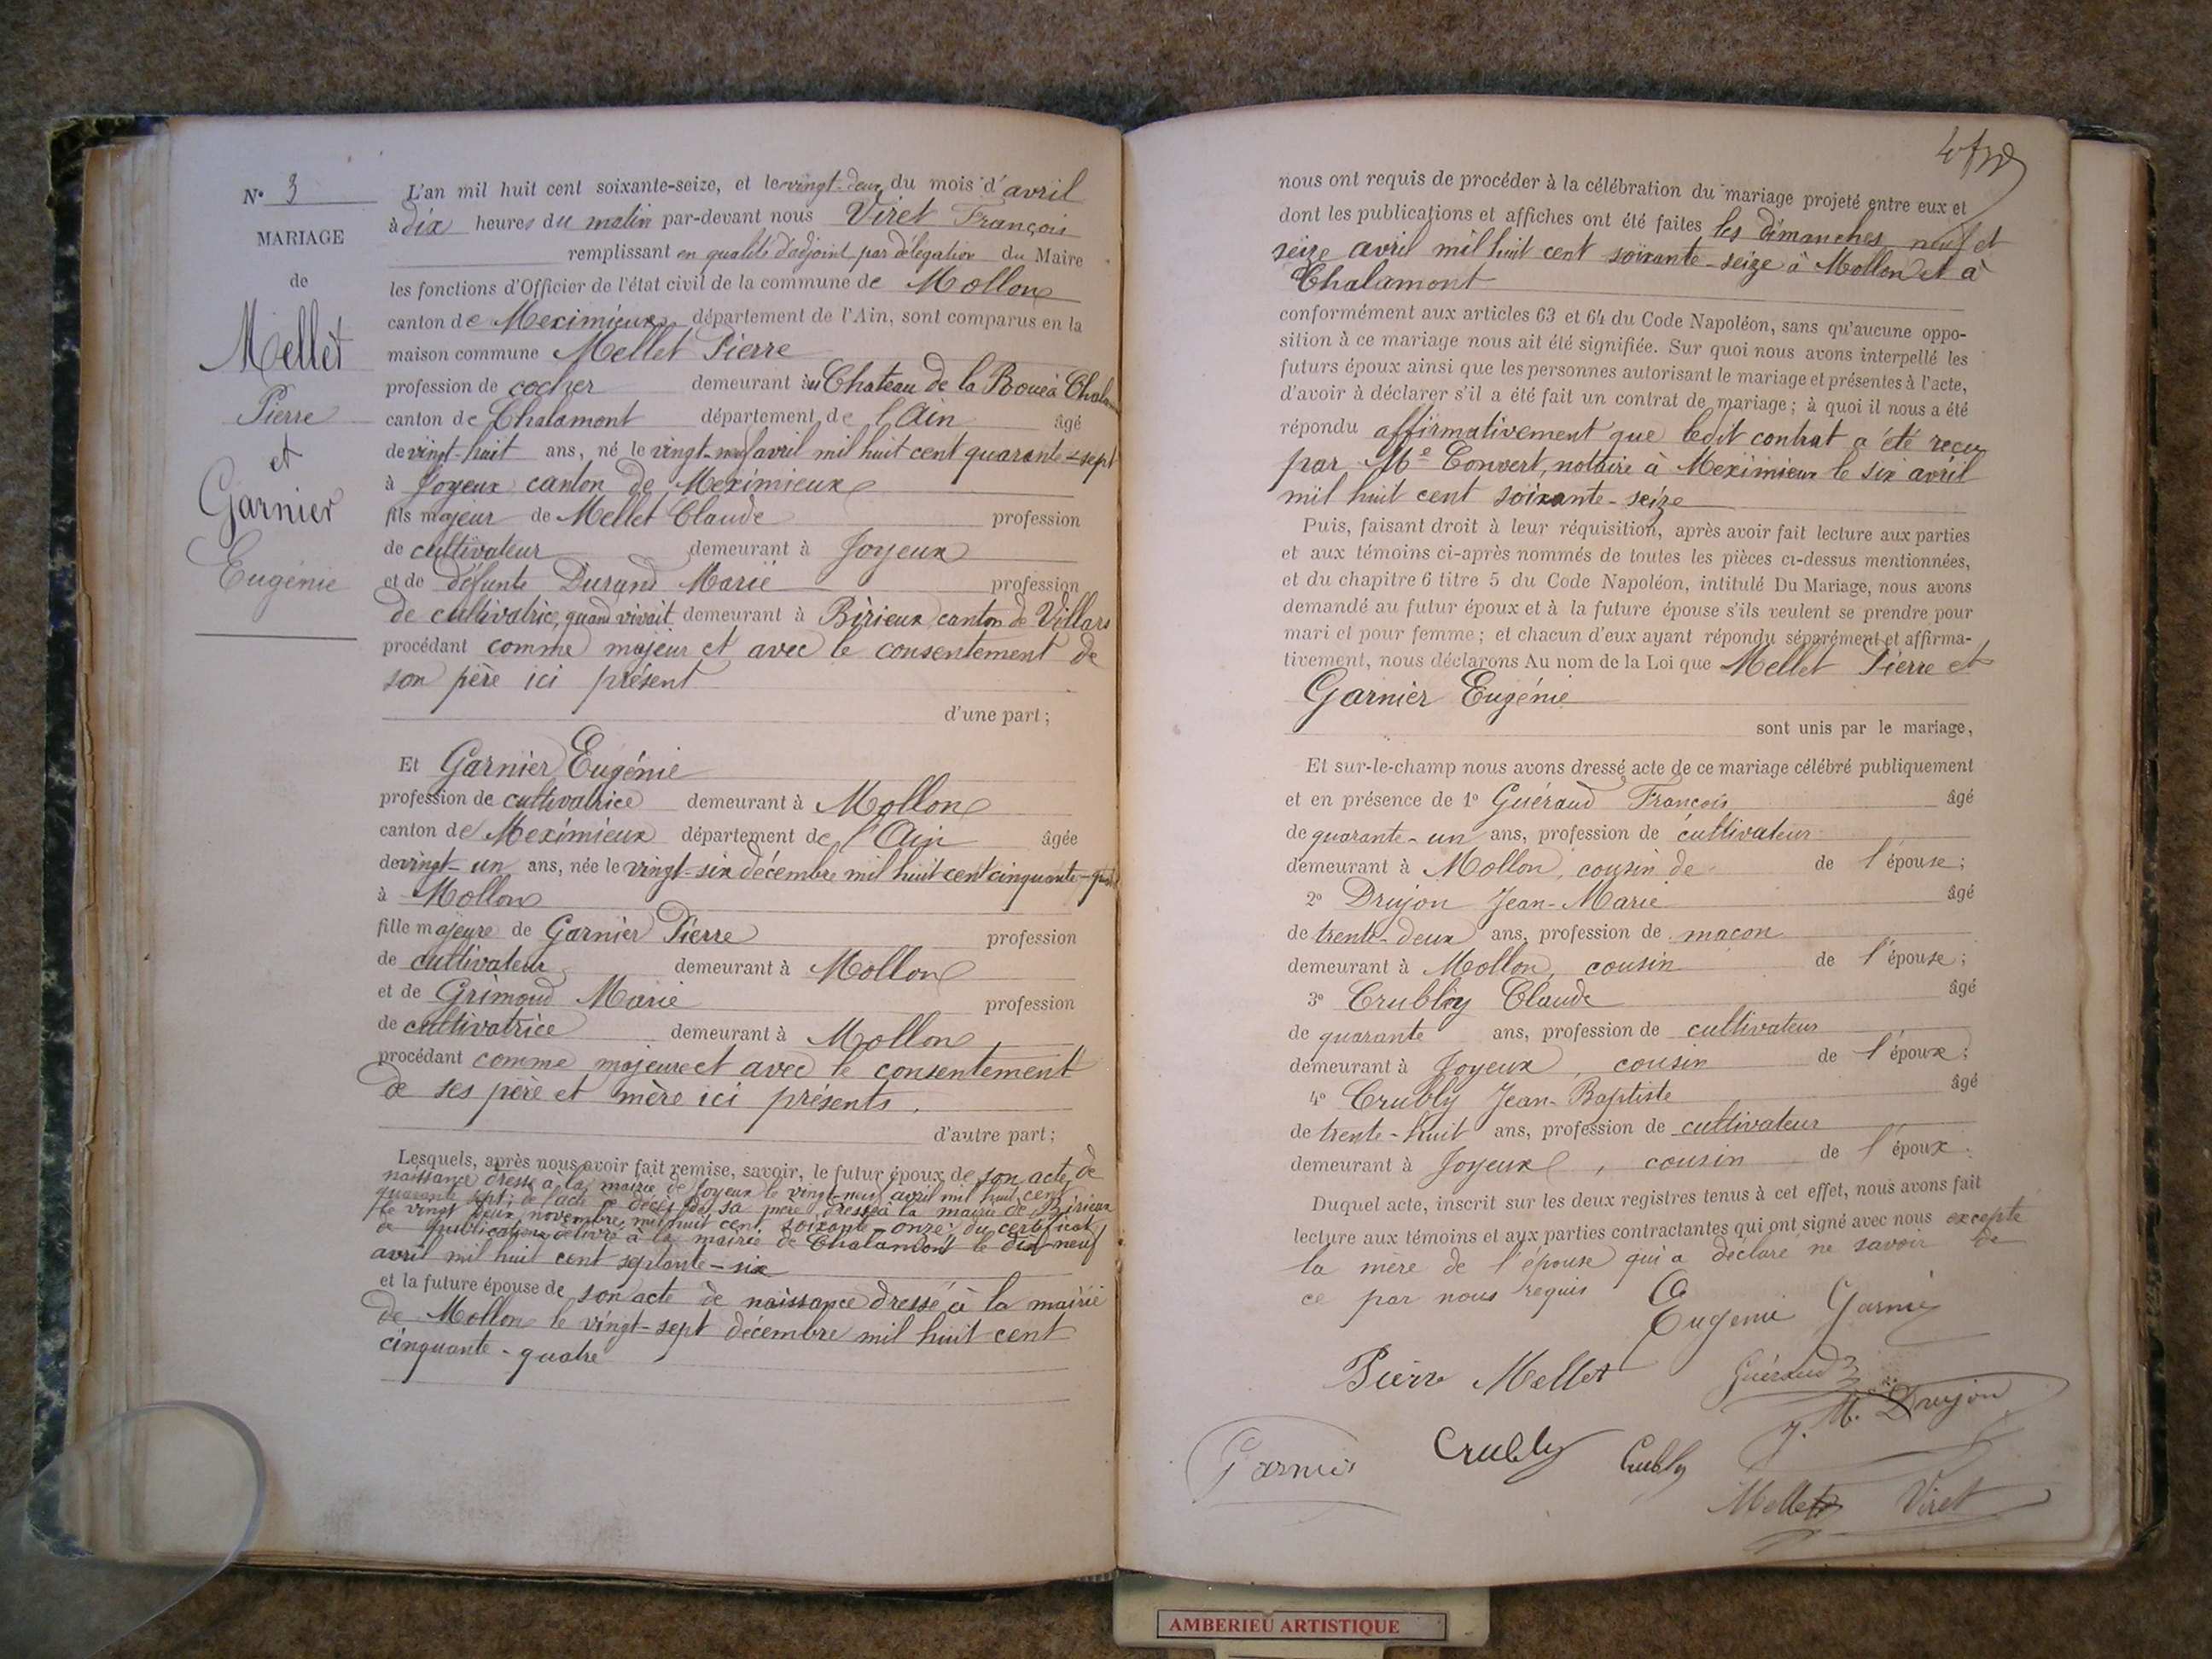 N° 3
MARIAGE
de
Mellet
Pierre
et
Garnier
Eugénie
L'an mil huit cent soixante-seize, et le vingt-deux du mois d'avril
à dix heures du matin par-devant nous Viret François
remplissant en qualité d'adjoint par délégation du Maire
les fonctions d'Officier de l'état civil de la commune de Mollon
canton de Meximieux département de l'Ain, sont comparus en la
maison commune Mellet Pierre
profession de cocher demeurant au Chateau de la Roue à
canton de Chalamont département de l'Ain âgé
de vingt-huit ans, né le vingt-neuf avril mil huit cent quarante-sept
à Joyeux canton de Meximieux
fils majeur de Mellet Claude profession
de cultivateur demeurant à Joyeux
et de défunte Durand Marie profession
de cultivatrice, quand vivait demeurant à Birieux canton de Villars
procédant comme majeur et avec le consentement de
son père ici présent
d'une part;
Et Garnier Eugénie
profession de cultivatrice demeurant à Mollon
canton de Meximieux département de l'Ain âgée
de vingt-un ans, née le vingt-six décembre mil huit cent cinquante-
à Mollon
fille majeure de Garnier Pierre profession
de cultivateur demeurant à Mollon
et de Grimoud Marie profession
de cultivatrice demeurant à Mollon
procédant comme majeure et avec le consentement
de ses père et mère ici présents.
d'autre part;
Lesquels, après nous avoir fait remise, savoir, le futur époux de son acte de
naissance dressé à la mairie de Joyeux le vingt-neuf avril mil huit cent
quarante sept; de l'acte de décès de sa mère dressé à la mairie de Birieux
le vingt deux novembre mil huit cent soixante-onze; du certificat
de publications délivré à la mairie de Chalamont le dix-neuf
avril mil huit cent septante-six
et la future épouse de son acte de naissance dressé à la mairie
de Mollon le vingt-sept décembre mil huit cent
cinquante-quatre
nous ont requis de procéder à la célébration du mariage projeté entre eux et
dont les publications et affiches ont été faites les dimanches neuf et
seize avril mil huit cent soixante-seize à Mollon et à
Chalamont
conformément aux articles 63 et 64 du Code Napoléon, sans qu'aucune oppo-
sition à ce mariage nous ait été signifiée. Sur quoi nous avons interpellé les
futurs époux ainsi que les personnes autorisant le mariage et présentes à l'acte,
d'avoir à déclarer s'il a été fait un contrat de mariage; à quoi il nous a été
répondu affirmativement que ledit contrat a été reçu
par Me Convert, notaire à Meximieux le six avril
mil huit cent soixante-seize
Puis, faisant droit à leur réquisition, après avoir fait lecture aux parties
et aux témoins ci-après nommés de toutes les pièces ci-dessus mentionnées,
et du chapitre 6 titre 5 du Code Napoléon, intitulé Du Mariage, nous avons
demandé au futur époux et à la future épouse s'ils veulent se prendre pour
mari et pour femme; et chacun d'eux ayant répondu séparément et affirma-
tivement, nous déclarons Au nom de la Loi que Mellet Pierre et
Garnier Eugénie
sont unis par le mariage,
Et sur-le-champ nous avons dressé acte de ce mariage célébré publiquement
et en présence de 1° Guéraud François âgé
de quarante-un ans, profession de cultivateur
demeurant à Mollon, cousin de de l'épouse;
2° Drujon Jean-Marie âgé
de trente-deux ans, profession de macon
demeurant à Mollon, cousin de l'épouse;
3° Crubliy Claude âgé
de quarante ans, profession de cultivateur
demeurant à Joyeux, cousin de l'époux;
4° Crubly Jean-Baptiste âgé
de trente-huit ans, profession de cultivateur
demeurant à Joyeux, cousin de l'époux.
Duquel acte, inscrit sur les deux registres tenus à cet effet, nous avons fait
lecture aux témoins et aux parties contractantes qui ont signé avec nous excepté
la mère de l'épouse qui a déclaré ne savoir de
ce par nous requis
Eugenie Garnier
Pierre Mellet
Guéraud
J. M. Drujon
Garnier
Crubly
Crubly
Mellet
Viret
AMBERIEU ARTISTIQUE